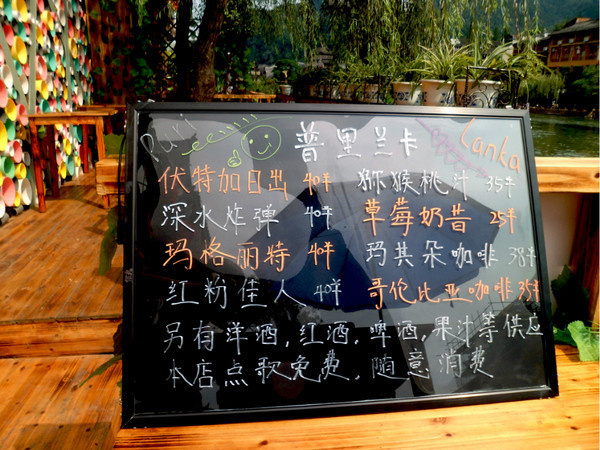 Puri 普里兰卡 Lanka
伏特加日出 40半 猕猴桃汁 35半
深水炸弹 40半 草莓奶昔 25半
玛格丽特 40半 玛其朵咖啡 38半
红粉佳人 40半 哥伦比亚咖啡 35半
另有洋酒,红酒,啤酒,果汁等供应
本店点歌免费,随意消费